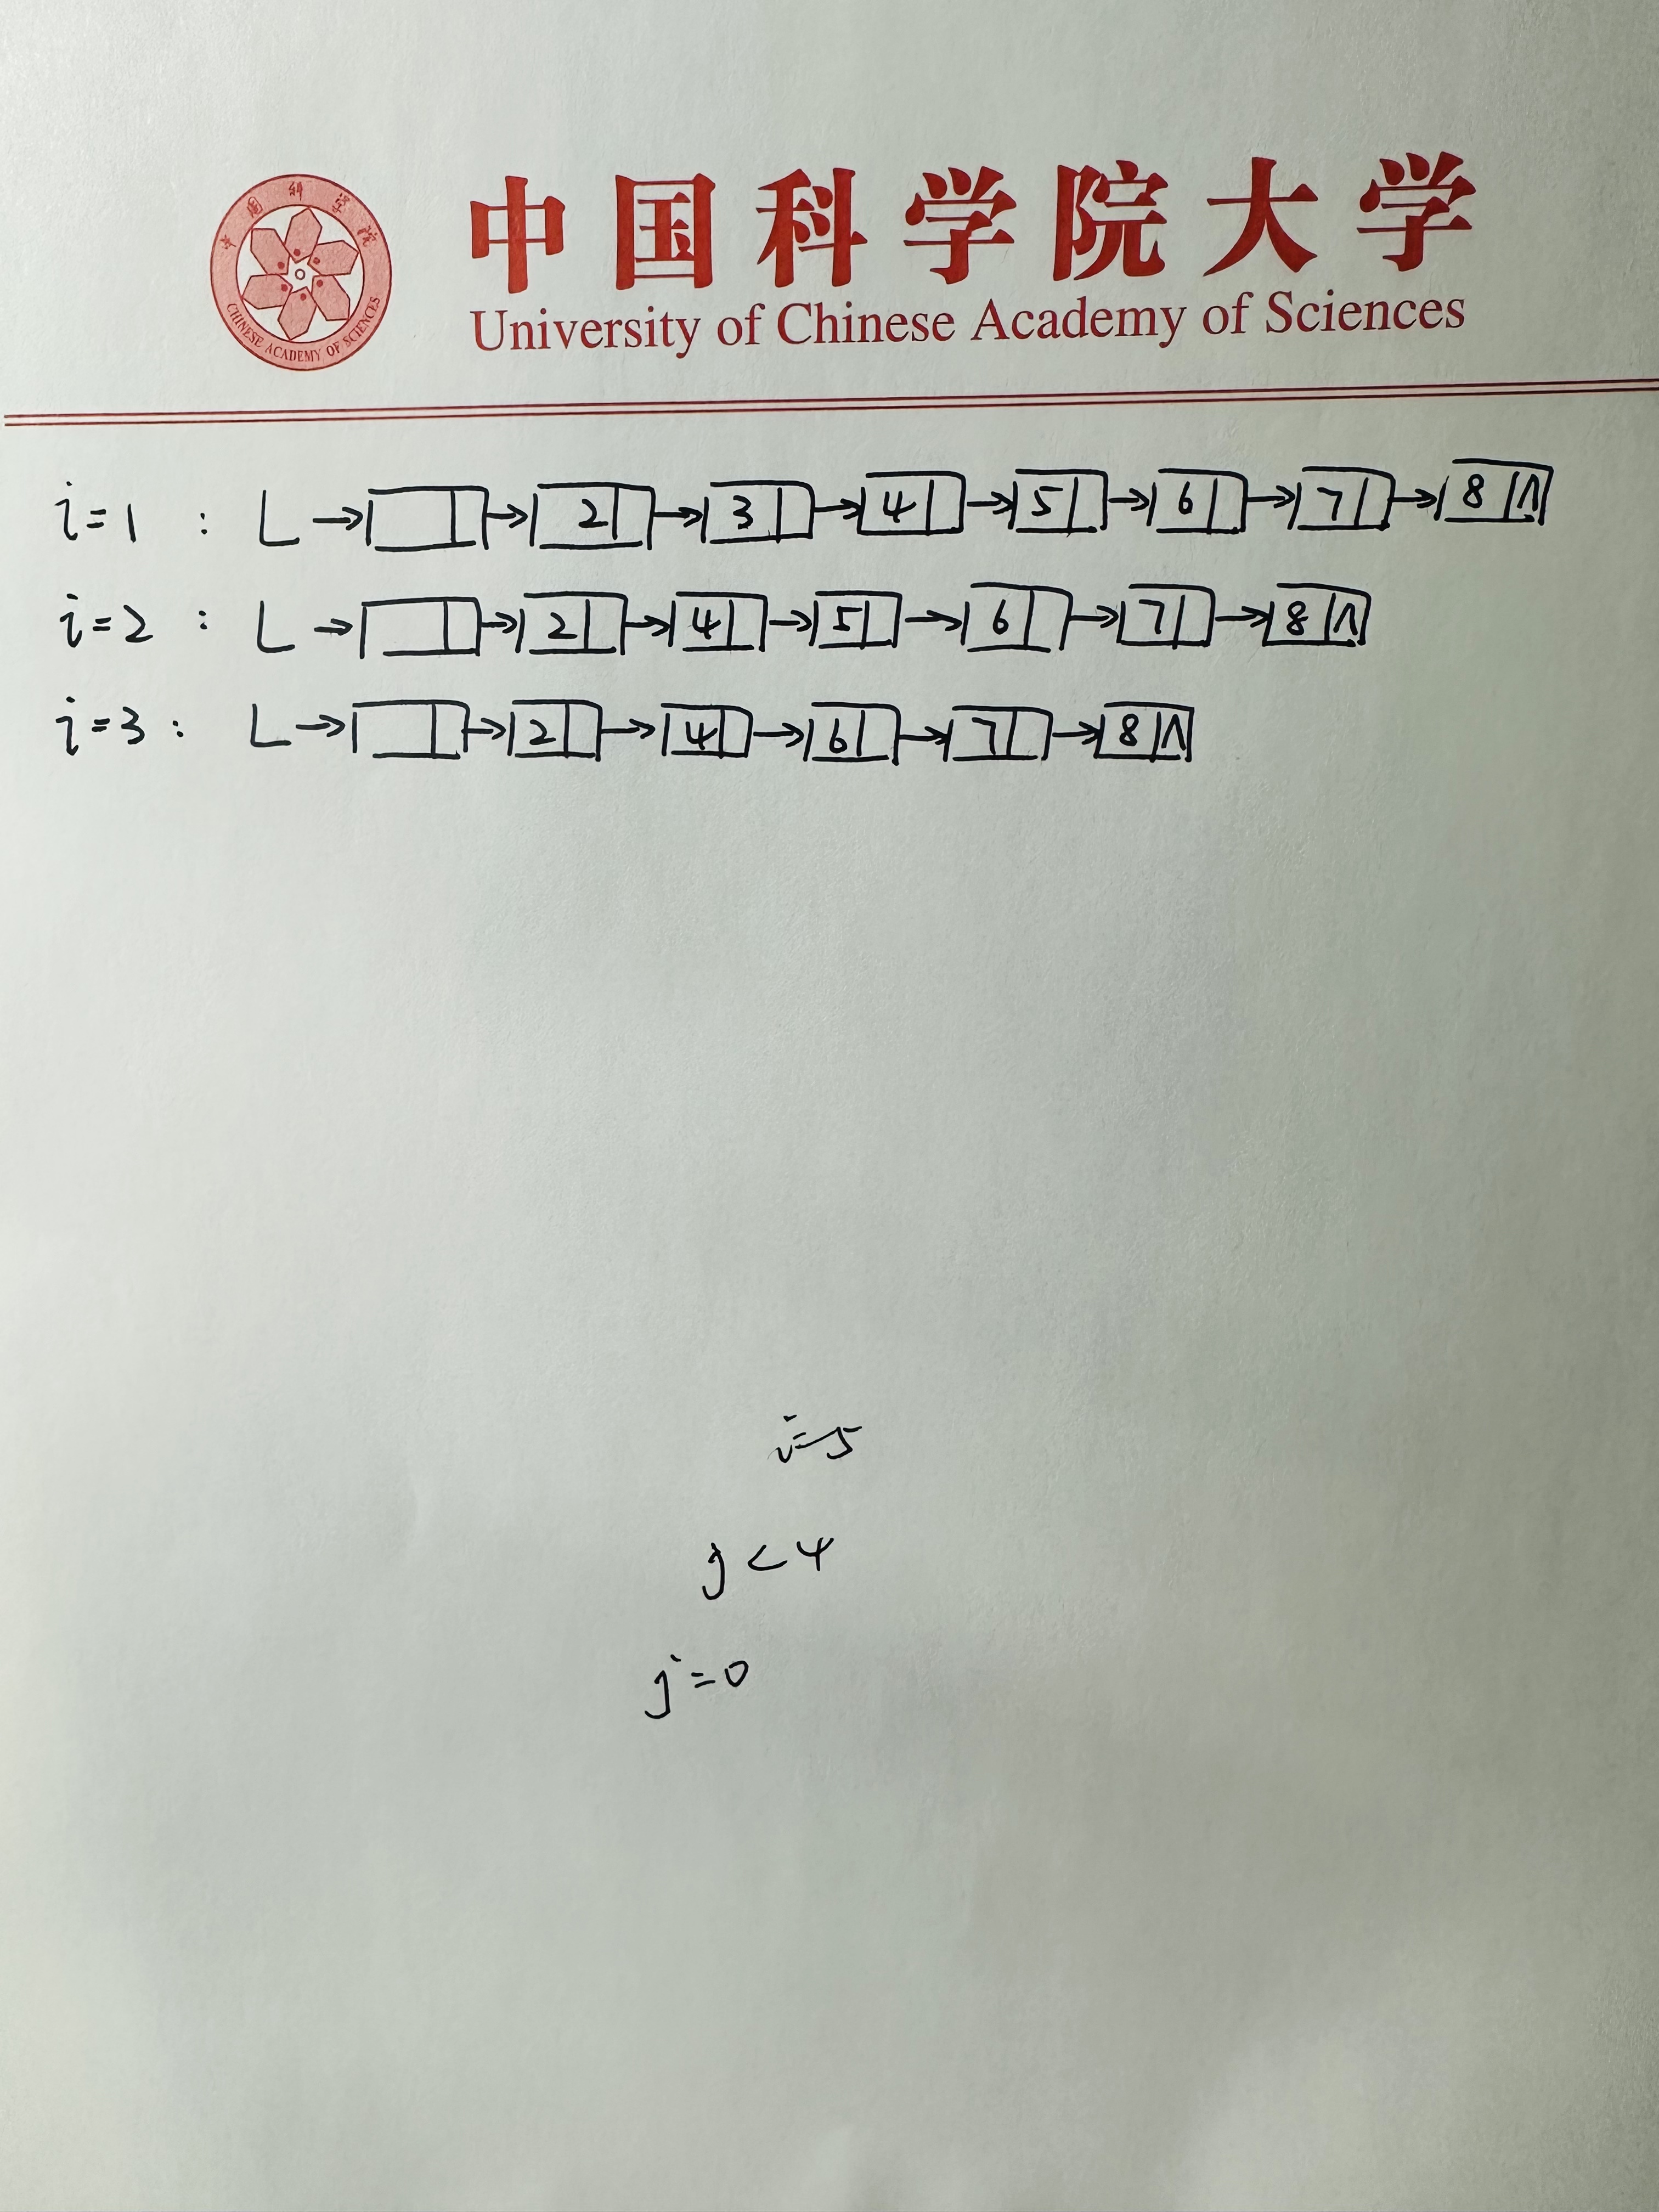 中国科学院
CHINESE ACADEMY OF SCIENCES
中国科学院大学
University of Chinese Academy of Sciences
i=1 : L → 2 → 3 → 4 → 5 → 6 → 7 → 8 ∧
i=2 : L → 2 → 4 → 5 → 6 → 7 → 8 ∧
i=3 : L → 2 → 4 → 6 → 7 → 8 ∧
i=5
j<4
j=0